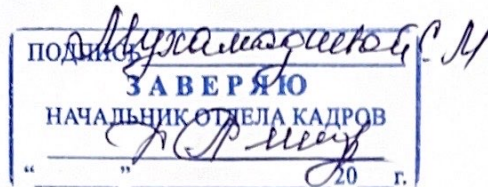 ПОДПИСЬ Мухамадиевой С.М
ЗАВЕРЯЮ
НАЧАЛЬНИК ОТДЕЛА КАДРОВ
“ ” 20 г.